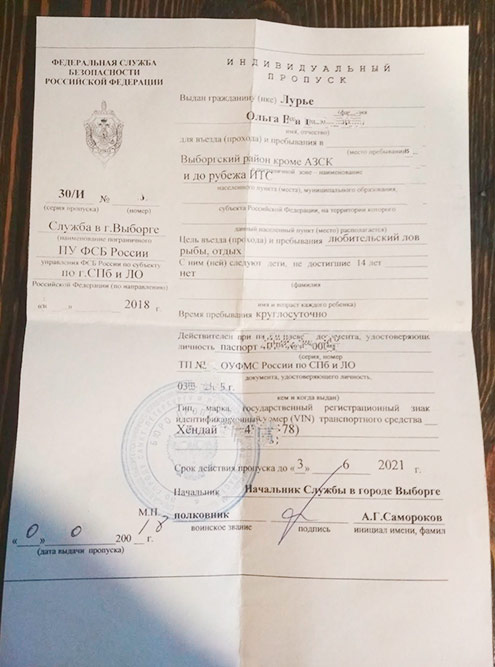 ФЕДЕРАЛЬНАЯ СЛУЖБА
БЕЗОПАСНОСТИ
РОССИЙСКОЙ ФЕДЕРАЦИИ
30/И № 3.
(серия пропуска) (номер)
Служба в г.Выборге
(наименование пограничного
ПУ ФСБ России
управления ФСБ России по субъекту
по г.СПб и ЛО
Российской Федерации (по направлению)
« » 2018 г.
ИНДИВИДУАЛЬНЫЙ
ПРОПУСК
Выдан гражданину (нке) Лурье
Ольга
имя, отчество)
для въезда (прохода) и пребывания в
(место пребывания
Выборгский район кроме АЗСК
зоне - наименование
и до рубежа ИТС
населенного пункта (места), муниципального образования,
субъекта Российской Федерации, на территории которого
данный населенный пункт (место) располагается)
Цель въезда (прохода) и пребывания любительский лов
рыбы, отдых
С ним (ней) следуют дети, не достигшие 14 лет
нет
(фамилия
имя и возраст каждого ребенка)
Время пребывания круглосуточно
Действителен при документа, удостоверяющ
личность паспорт
(серия, номер
ТП № ОУФМС России по СПб и ЛО
документа, удостоверяющего личность,
г.
кем и когда выдан)
Тип, марка, государственный регистрационный знак
идентификационный номер (VIN) транспортного средства
Хёндай 78)
Срок действия пропуска до «3 6 2021 г.
Начальник Начальник Службы в городе Выборге
М.П. полковник А.Г.Самороков
воинское звание подпись инициал имени, фамил
«0» 0 200 18 г.
(дата выдачи пропуска)